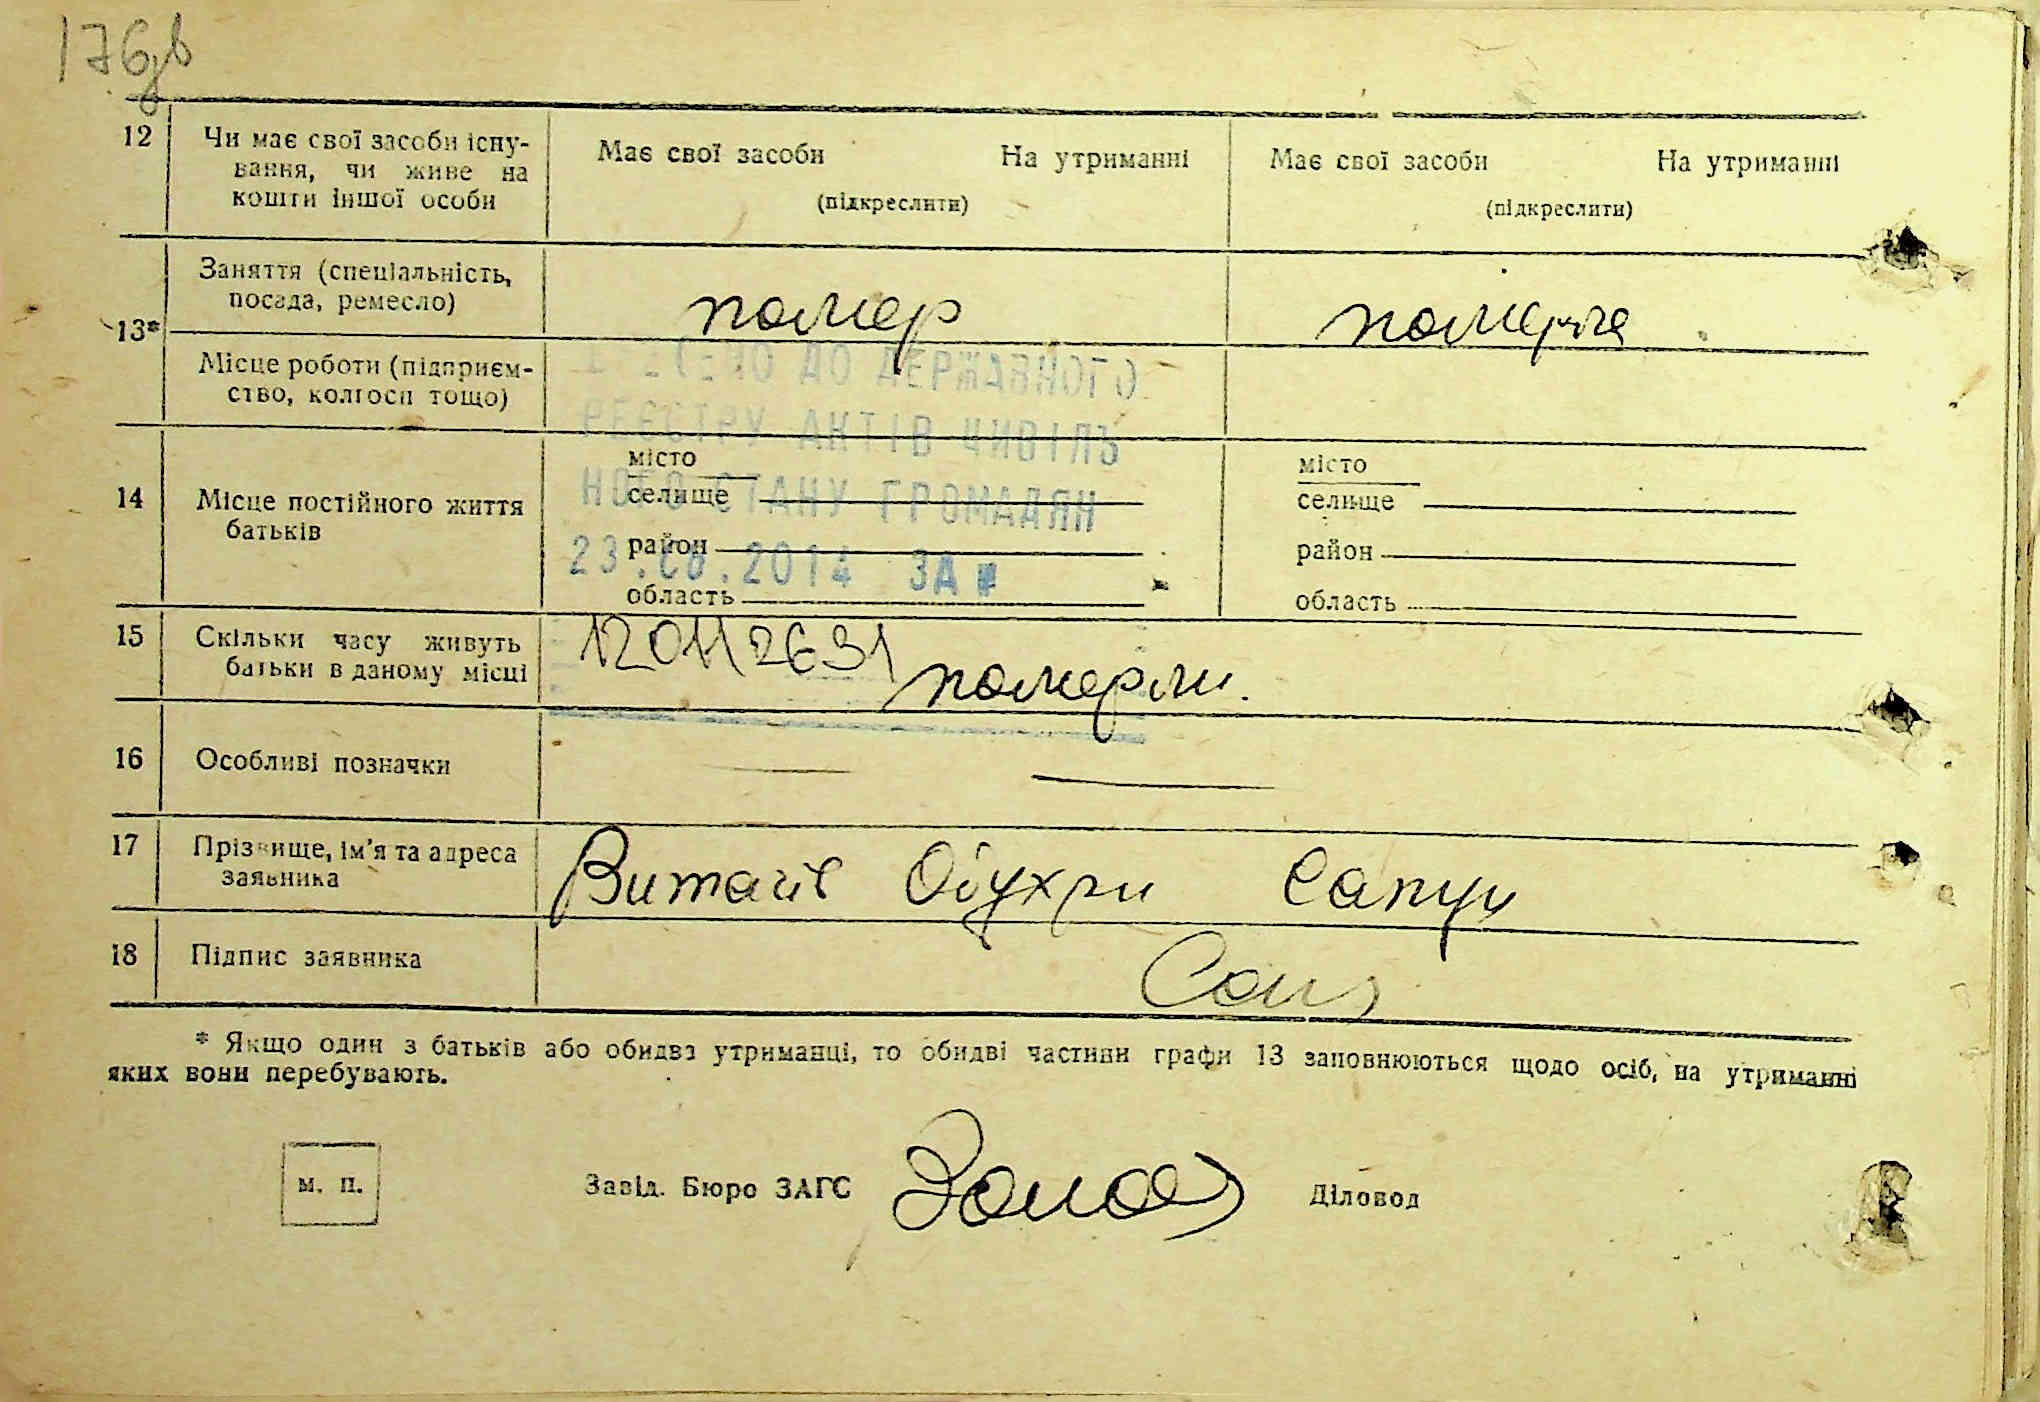 176
12 Чи має свої засоби існу-
вання, чи живе на
кошти іншої особи
Має свої засоби На утриманні
(підкреслити)
Має свої засоби На утриманні
(підкреслити)
13*
Заняття (спеціальність,
посада, ремесло)
помер
померла
Місце роботи (підприєм-
ство, колгосп тощо)
ДО ДЕРЖАВНОГО
РЕЄСТРУ АКТІВ ЦИВІЛЬ
НОГО СТАНУ ГРОМАДЯН
23.08.2014 ЗА
14 Місце постійного життя
батьків
місто
селище
район
область
місто
селище
район
область
15 Скільки часу живуть
батьки в даному місці
120112631
померли.
16 Особливі позначки
17 Прізвище, ім'я та адреса
заявника
18 Підпис заявника
* Якщо один з батьків або обидва утриманці, то обидві частини графи 13 заповнюються щодо осіб, на утриманні
яких вони перебувають.
м. п.
Завід. Бюро ЗАГС
Діловод